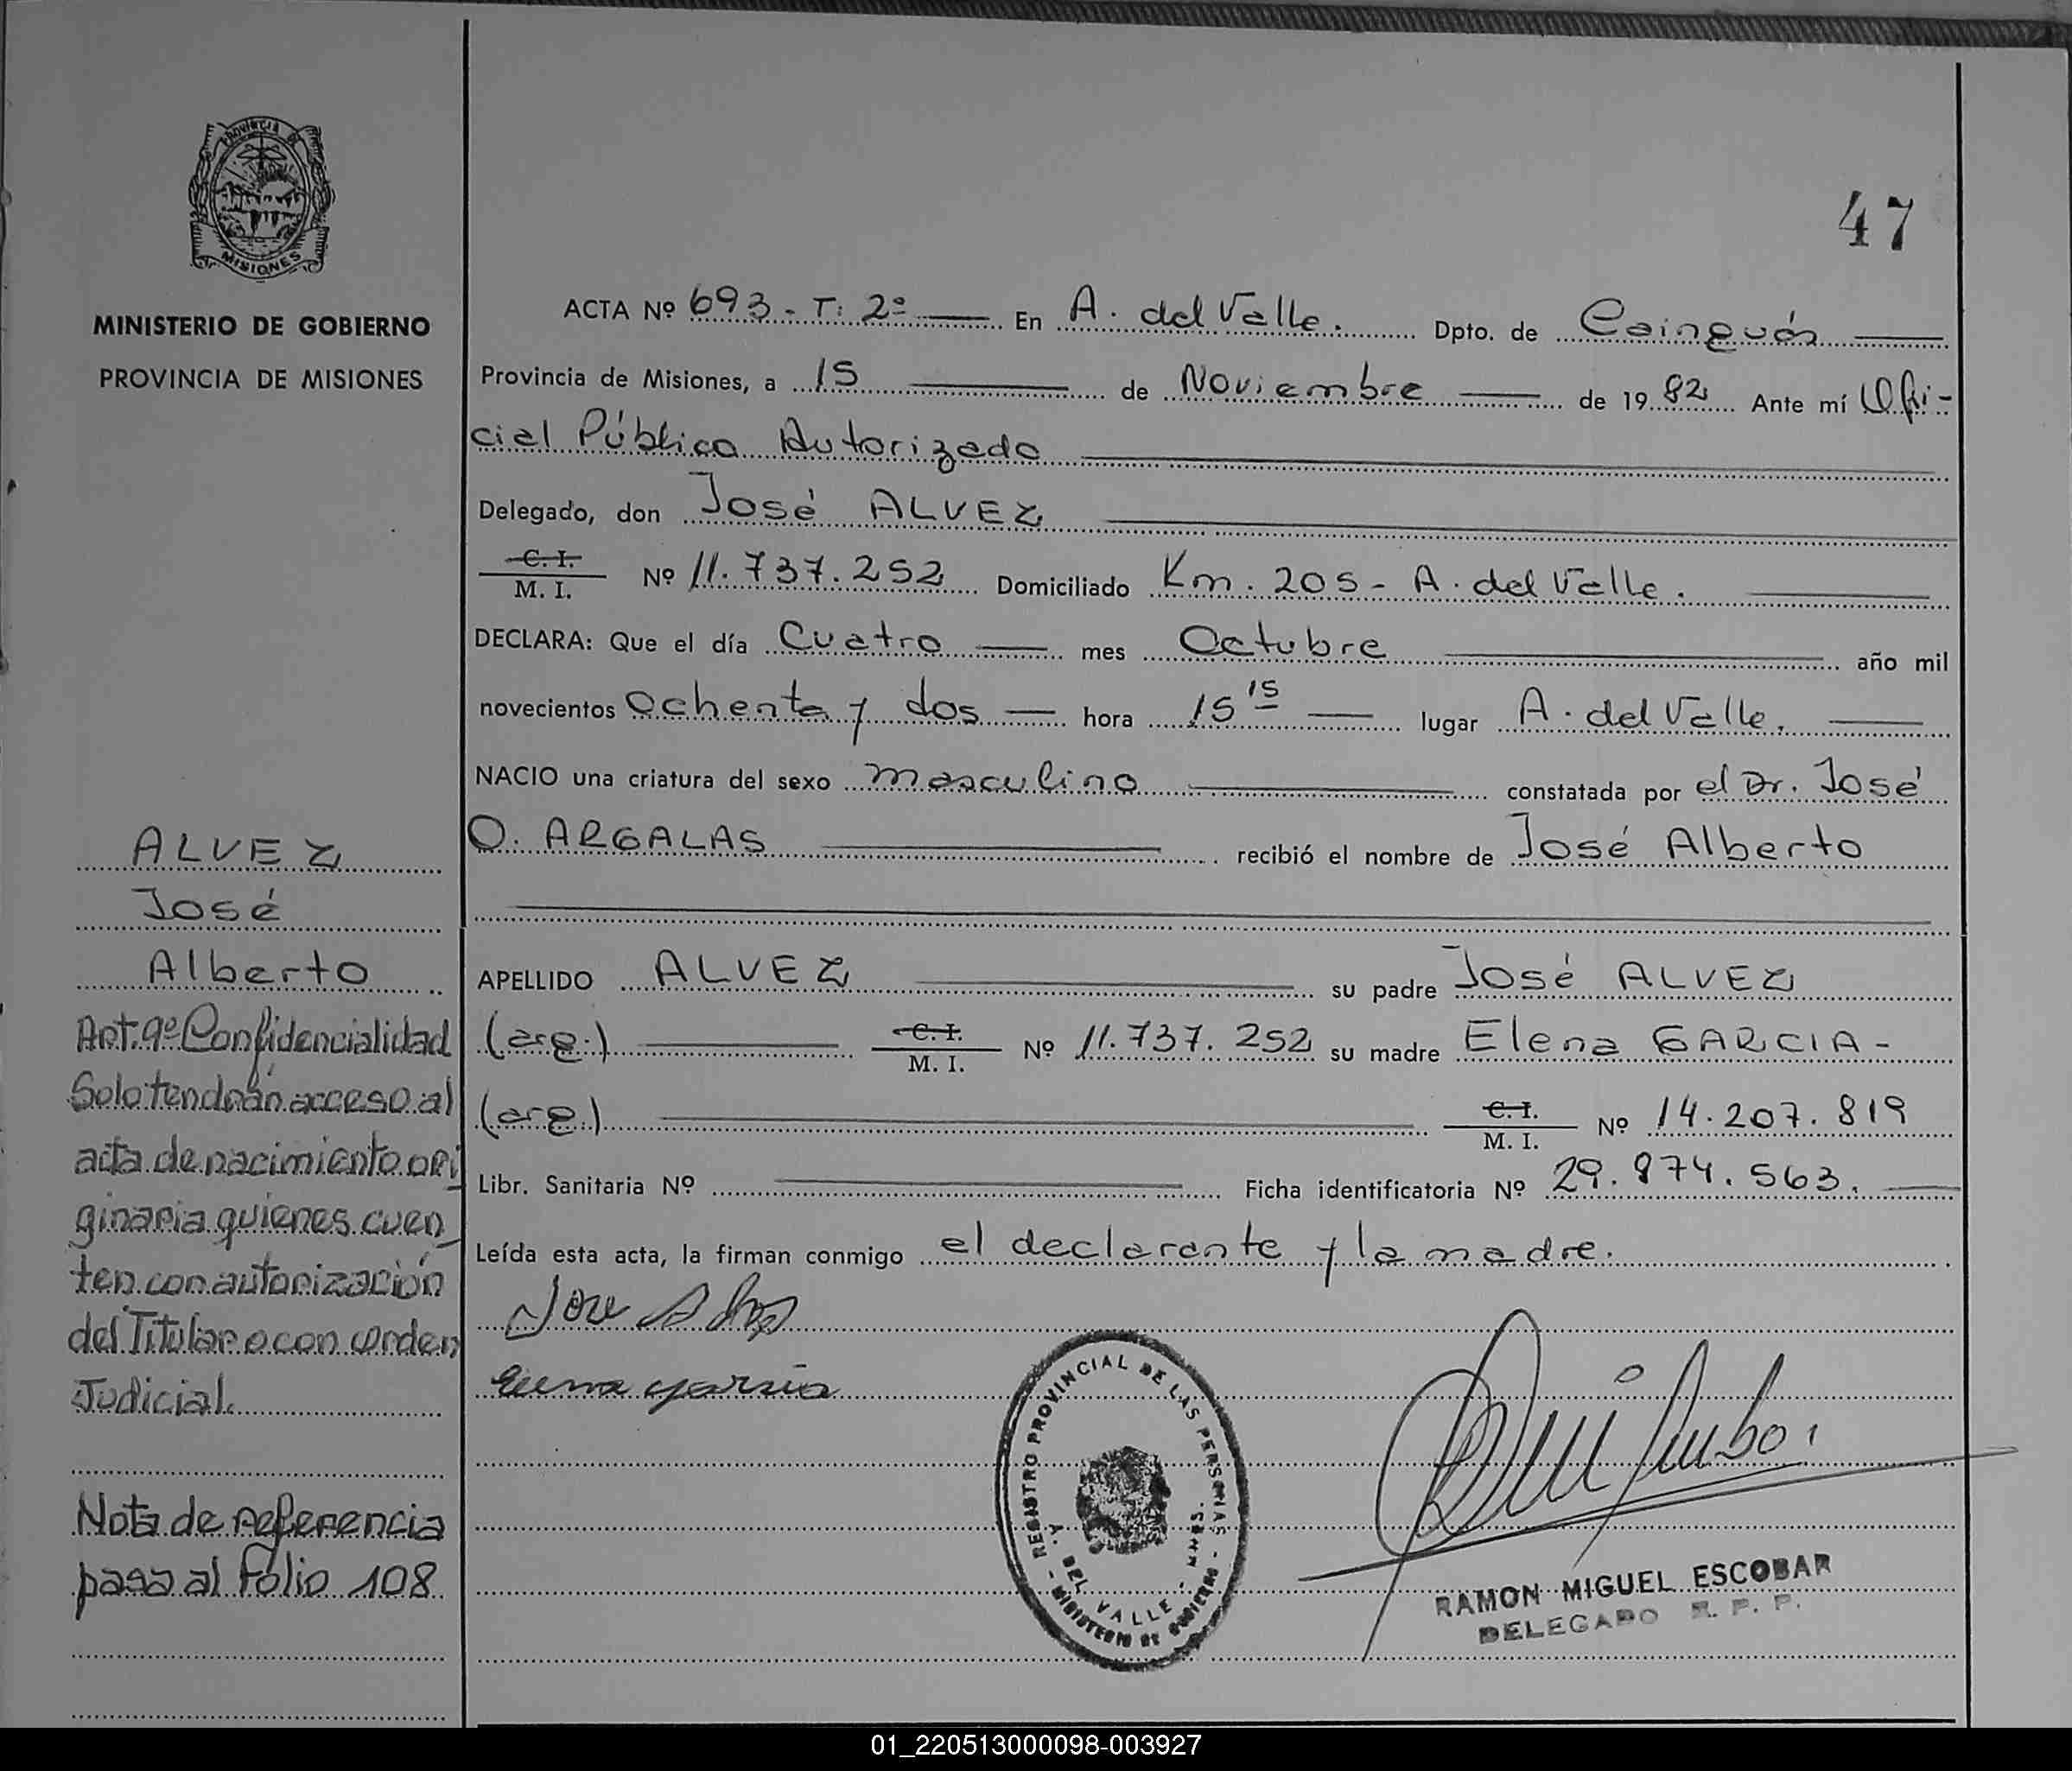 PROVINCIA DE
MISIONES
MINISTERIO DE GOBIERNO
PROVINCIA DE MISIONES
47
ACTA Nº 693 - T: 2º En A. del Valle. Dpto. de Cainguás
Provincia de Misiones, a 15 de Noviembre de 1982 Ante mí Ofi-
cial Público Autorizado
Delegado, don José ALVEZ
C. I.
M. I. Nº 11.737.252 Domiciliado Km. 205 - A. del Valle.
DECLARA: Que el día Cuatro mes Octubre año mil
novecientos Ochenta y dos hora 15 15 lugar A. del Valle.
NACIO una criatura del sexo masculino constatada por el Dr. José
O. ARGALAS recibió el nombre de José Alberto
APELLIDO ALVEZ su padre José ALVEZ
(arg.) C. I. M. I. Nº 11.737.252 su madre Elena GARCIA -
(arg.) C. I. M. I. Nº 14.207.819
Libr. Sanitaria Nº Ficha identificatoria Nº 29.874.563.
Leída esta acta, la firman conmigo el declarante y la madre.
Elena Garcia
ALVEZ
José
Alberto
Art. 9º Confidencialidad
Solo tendrán acceso al
acta de nacimiento ori
ginaria quienes cuen
ten con autorización
del Titular o con orden
Judicial.
Nota de referencia
pasa al Folio 108
- REGISTRO PROVINCIAL DE LAS PERSONAS -
MINISTERIO DE GOBIERNO
A. DEL VALLE - MNES.
RAMON MIGUEL ESCOBAR
DELEGADO R. P. P.
01_220513000098-003927